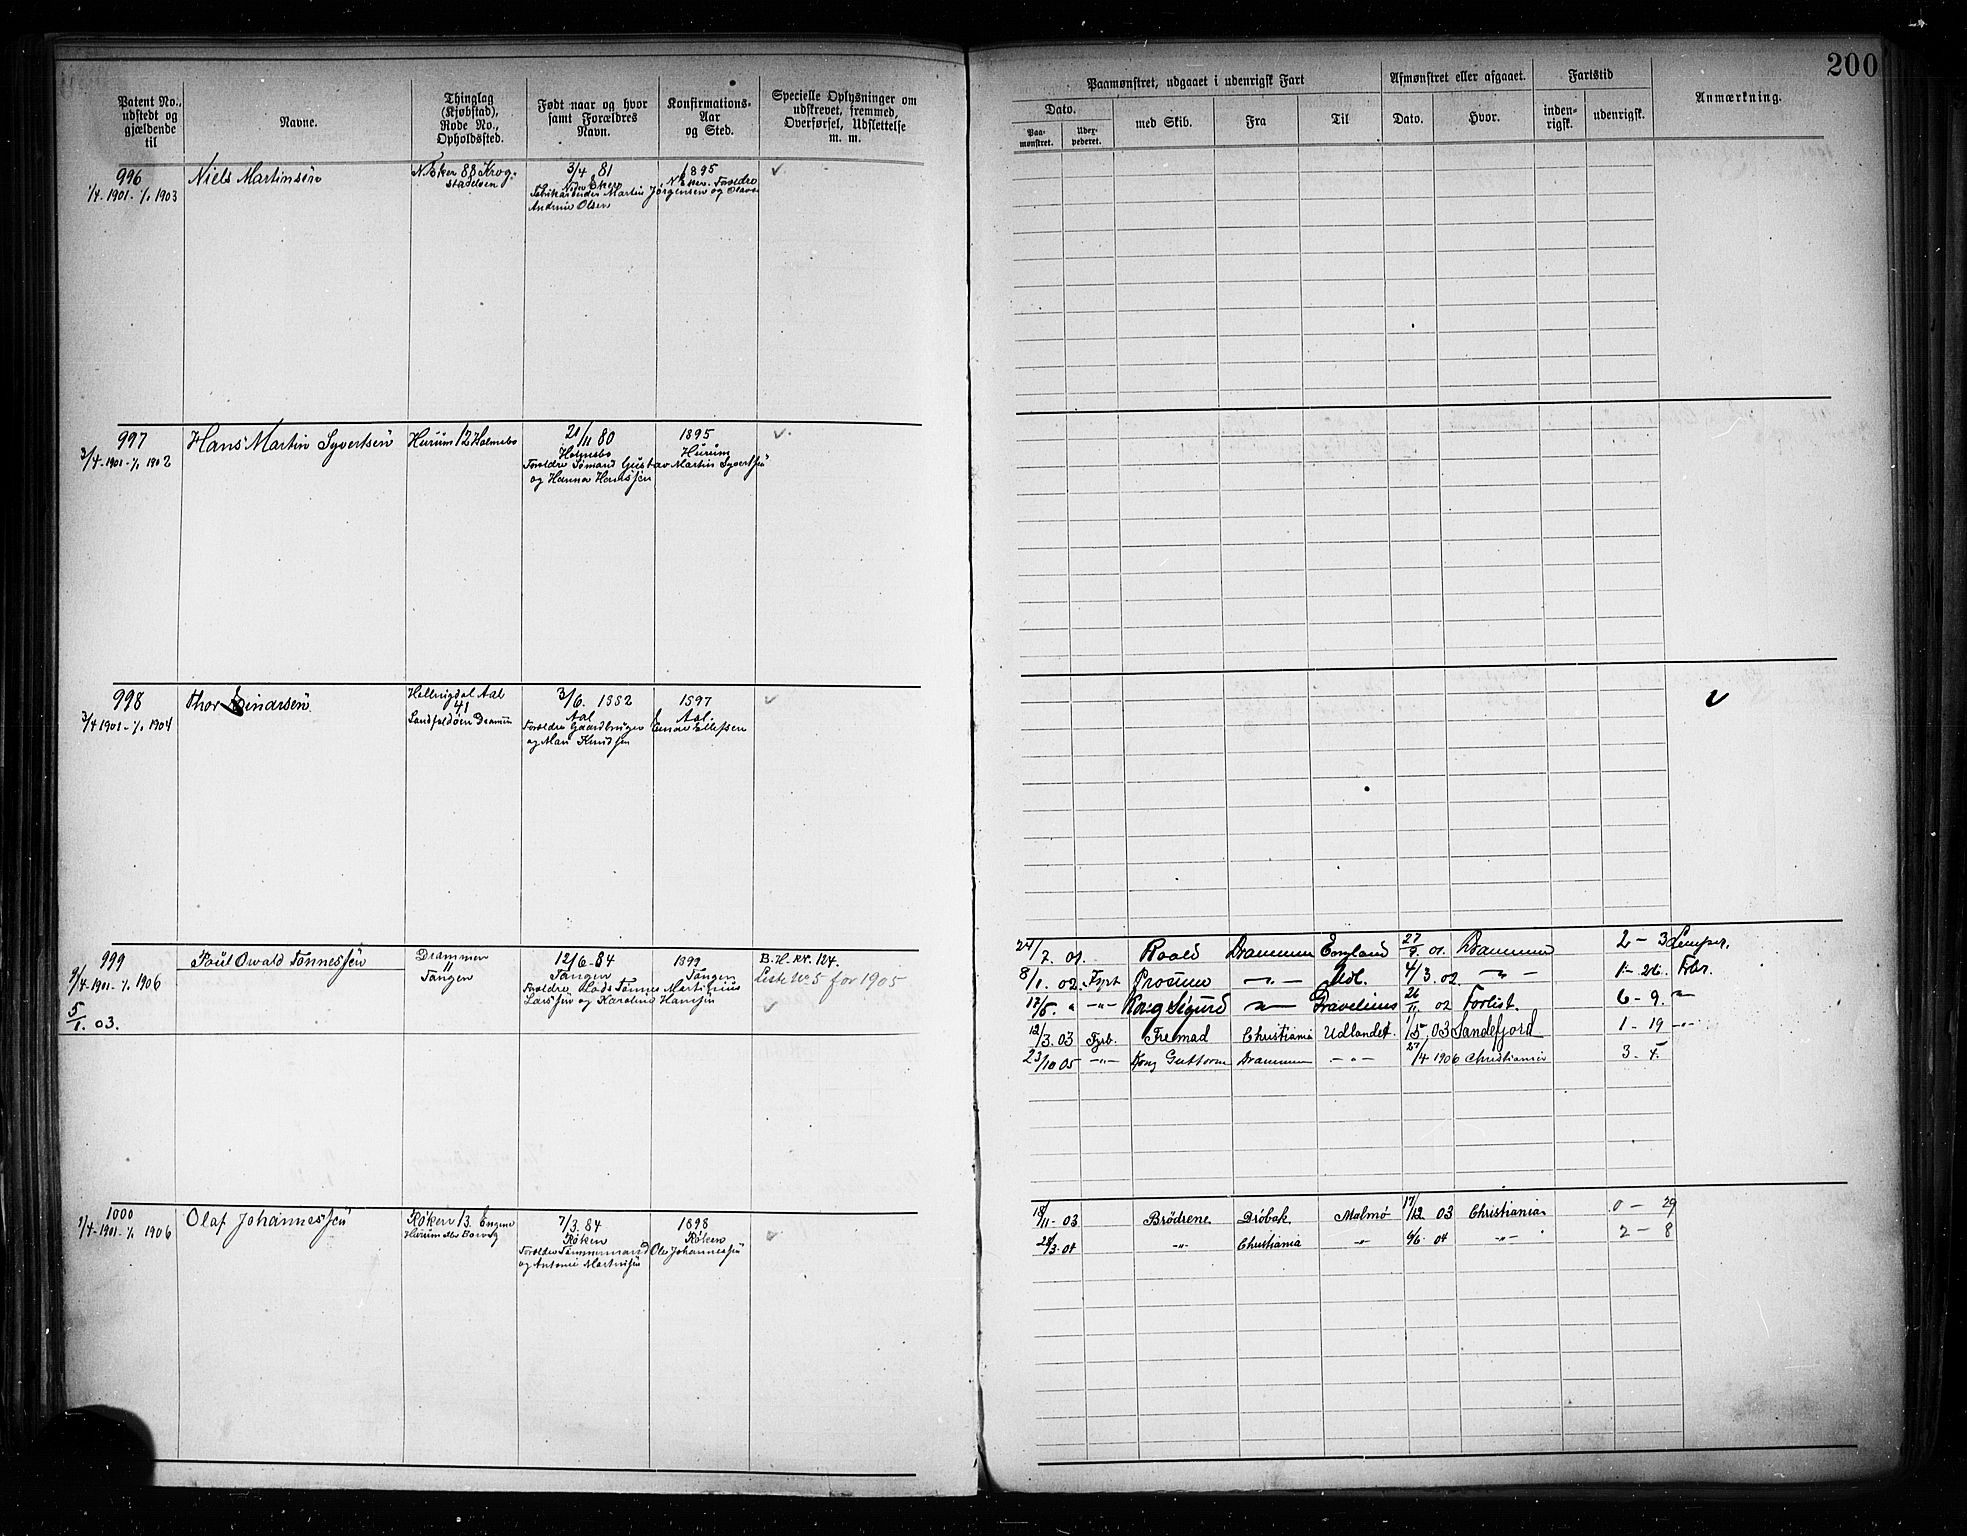 200
Patent No., udstedt og gjældende til
Navne.
Thinglag (Kjøbstad), Rode No., Opholdssted.
Født naar og hvor samt Forældres Navn.
Konfirmations-Aar og Sted.
Specielle Oplysninger om udskrevet, fremmed, Overførsel, Udslettelse m. m.
Paamønstret, udgaaet i udenrigsk Fart
Dato.
Paa-mønstret.
Udex-pederet.
med Skib.
Fra
Til
Afmønstret eller afgaaet.
Dato.
Hvor.
Fartstid
inden-rigsk.
udenrigsk.
Anmærkning.
996
1/4-1901-1/1 1903
Niels Martinsen
N. Eker 88 Krog-
stadelven
3/4 81
Nedre Eker
1895
N. Eker. Foreldre
Fabrikarbeider Martin Jørgensen og Olava
Andrine Olsen
997
3/4-1901-1/1 1902
Hans Martin Syvertsen
Hurum 12 Holmsbo
21/11 80
Holmsbo
1895
Hurum
Foreldre Sømand Gustav Martin Syvertsen
og Hanna Hansen
998
3/4 1901-1/1 1904
Thor Einarsen
Hallingdal Aal
41
Drammen
3/6. 1882
Aal
1897
Aal.
Foreldre Gaardbruger Einar Ellefsen
og Mari Knudsen
999
9/4-1901-1/1 1906
5/1. 03.
Poul Osvald Tønnessen
Drammen
11
Tangen
12/6-84
Tangen
1899
Tangen
Foreldre Lods Tønnes Martinius
Larssen og Karoline Hansen
B. H. R. 124.
Liste No 5 for 1905
24/7. 01. Roald Drammen England 27/9. 01. Drammen 2 - 3 Lemper.
8/1. 02. Fyrb. -"- Udl. 4/3. 02. -"- 1 - 26. Fbr.
17/5. " -"- Kong Sigurd -"- Gravelines 26/11. 02 Forlist. 6 - 9. -"-
12/3. 03 Fyrb. Fremad Christiania Udlandet 1/5. 03 Sandefjord 1 - 19 -"-
23/10 05 -"- Kong Guttorm Drammen -"- 27/4 1906 Christiania 3 - 4.
1000
9/4-1901-1/1 1906
Olaf Johannessen
Røken 13. Engene
Hurum
7/3. 84
Røken
1898
Røken
Foreldre Tømmermand Ole Johannessen
og Antonie Martinsen
18/11-03 Brødrene Drøbak Malmø 17/12 03 Christiania 0 - 29
28/3-04 -"- Christiania -"- 6/6 04 -"- 2 - 8